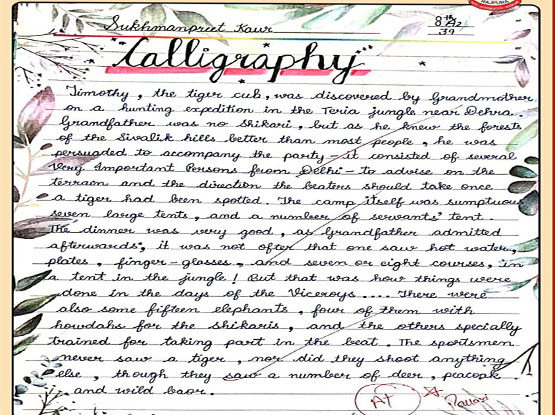 Sukhmanpreet Kaur
8th A2
39
Calligraphy
Timothy, the tiger cub, was discovered by Grandmother
on a hunting expedition in the Teria jungle near Dehra.
Grandfather was no shikari, but as he knew the forests
of the Siwalik hills better than most people, he was
persuaded to accompany the party - it consisted of several
Very Important Persons from Delhi - to advise on the
terrain and the direction the beaters should take once
a tiger had been spotted. The camp itself was sumptuous
seven large tents, and a number of servants' tent.
The dinner was very good, as Grandfather admitted
afterwards, it was not often that one saw hot water,
plates, finger-glasses, and seven or eight courses, in
a tent in the jungle! But that was how things were
done in the days of the Viceroys .... There were
also some fifteen elephants, four of them with
howdahs for the shikaris, and the others specially
trained for taking part in the beat. The sportsmen
never saw a tiger, nor did they shoot anything
else, though they saw a number of deer, peacok
and wild boar.
A+
Pallavi